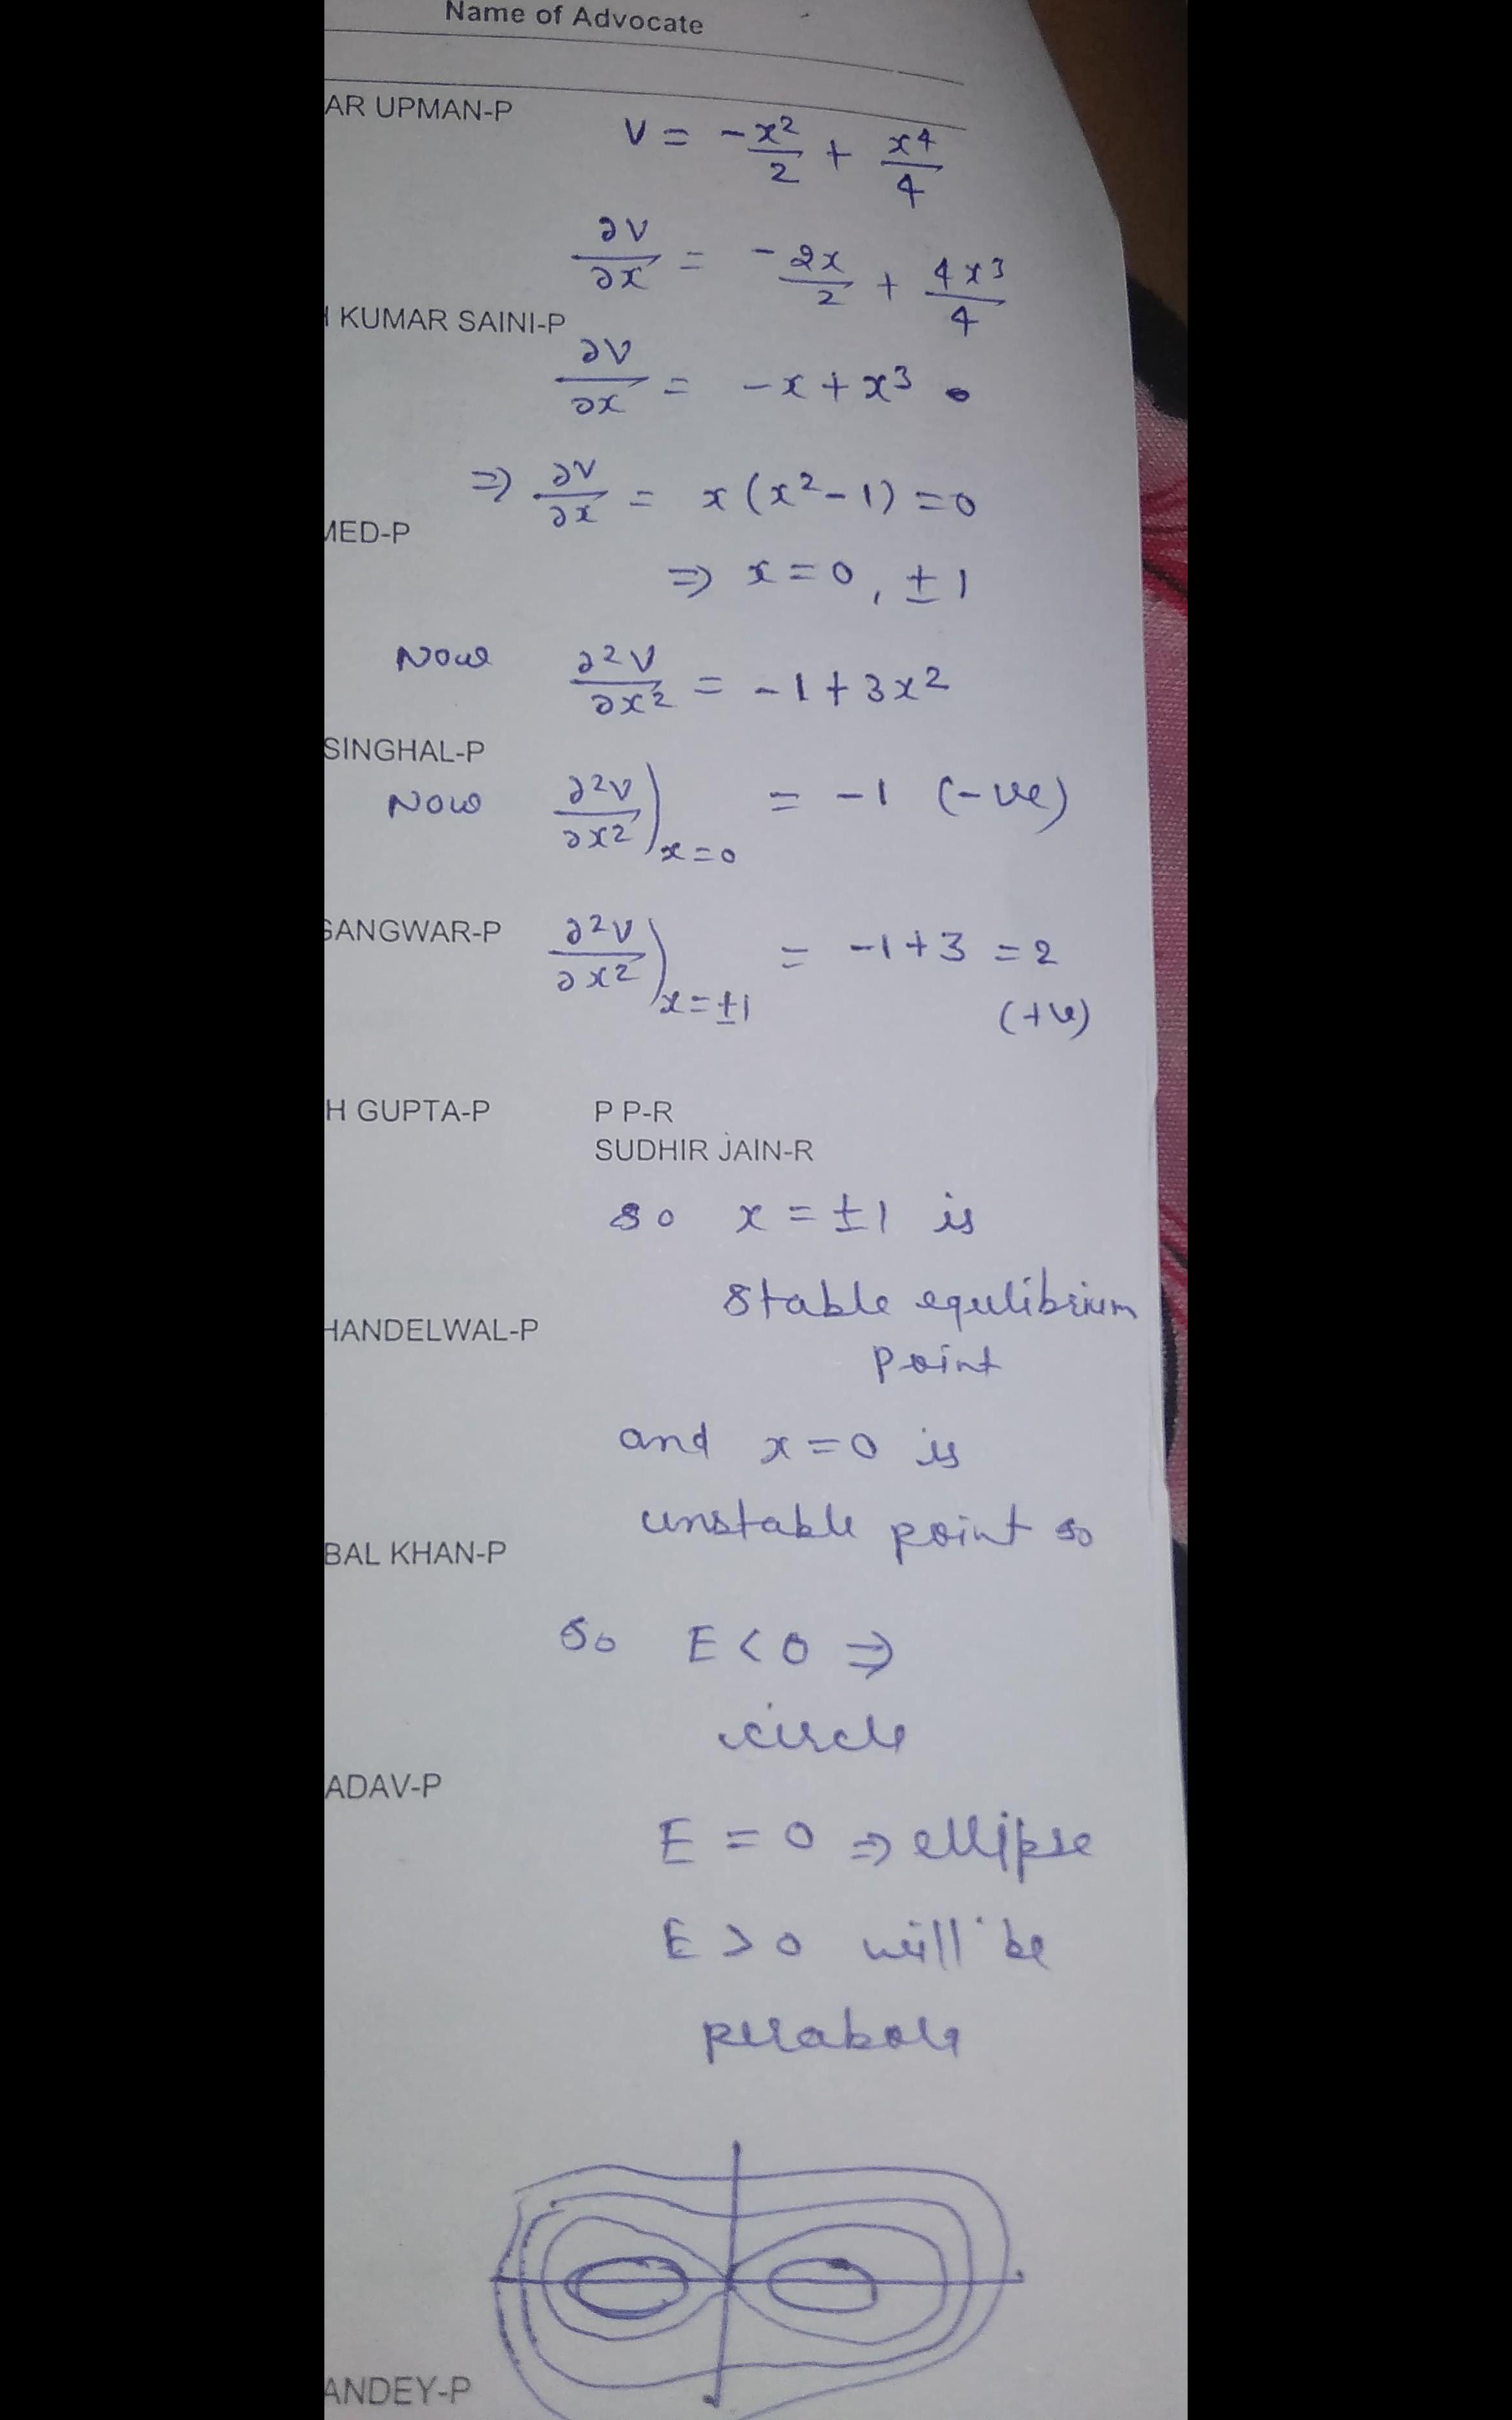 Name of Advocate
AR UPMAN-P
V = -x²/2 + x⁴/4
∂V/∂x = -2x/2 + 4x³/4
KUMAR SAINI-P
∂V/∂x = -x + x³
⇒ ∂V/∂x = x(x²-1) = 0
MED-P
⇒ x = 0, ±1
Now ∂²V/∂x² = -1 + 3x²
SINGHAL-P
Now ∂²V/∂x²)x=0 = -1 (-ve)
GANGWAR-P
∂²V/∂x²)x=±1 = -1+3 = 2
(+ve)
H GUPTA-P P P-R
SUDHIR JAIN-R
so x = ±1 is
stable equlibrium
HANDELWAL-P
point
and x=0 is
unstable point so
BAL KHAN-P
So E < 0 ⇒
circle
ADAV-P
E = 0 ⇒ ellipse
E > 0 will be
perabola
ANDEY-P